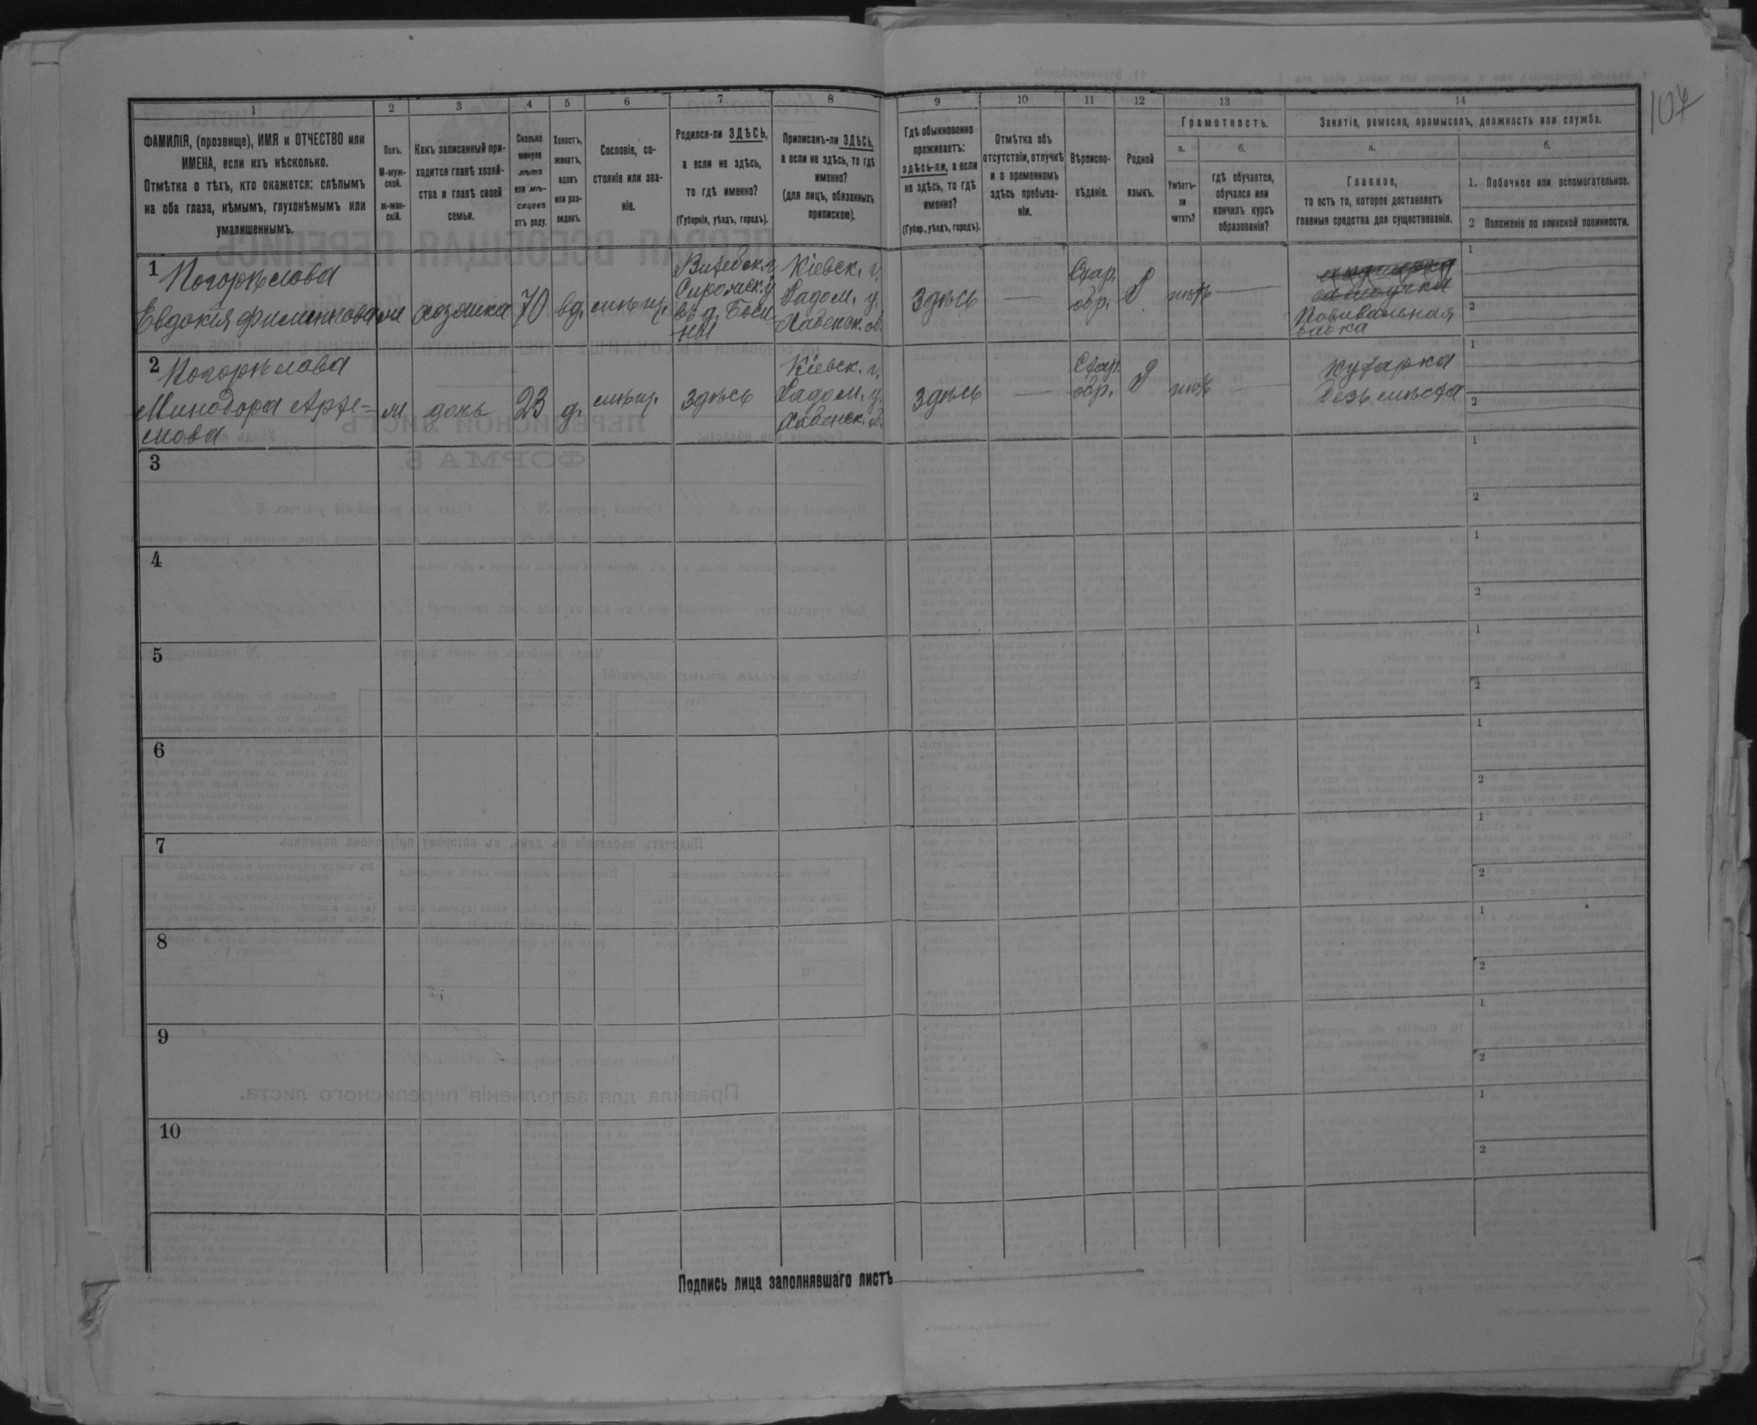 107
1
2
3
4
5
6
7
8
9
10
11
12
13
14
ФАМИЛІЯ, (прозвище), ИМЯ и ОТЧЕСТВО или
ИМЕНА, если ихъ нѣсколько.
Отмѣтка о тѣхъ, кто окажется: слѣпымъ
на оба глаза, нѣмымъ, глухонѣмымъ или
умалишеннымъ.
Полъ.
М-муж-
ской.
ж-жен-
скій.
Какъ записанный при-
ходится главѣ хозяй-
ства и главѣ своей
семьи.
Сколько
минуло
лѣтъ
или мѣ-
сяцевъ
отъ роду.
Холостъ,
женатъ,
вдовъ
или раз-
веденъ.
Сословіе, со-
стояніе или зва-
ніе.
Родился-ли ЗДѢСЬ,
а если не здѣсь,
то гдѣ именно?
(Губернія, уѣздъ, городъ).
Приписанъ-ли ЗДѢСЬ,
а если не здѣсь, то гдѣ
именно?
(для лицъ, обязанныхъ
припискою).
Гдѣ обыкновенно
проживаетъ:
здѣсь-ли, а если
не здѣсь, то гдѣ
именно?
(Губер., уѣздъ, городъ).
Отмѣтка объ
отсутствіи, отлучкѣ
и о временномъ
здѣсь пребыва-
ніи.
Вѣроиспо-
вѣданіе.
Родной
языкъ.
Грамотность.
а.
Умѣетъ-
ли
читать?
б.
гдѣ обучается,
обучался или
кончилъ курсъ
образованія?
Занятіе, ремесло, промыселъ, должность или служба.
а.
Главное,
то есть то, которое доставляетъ
главныя средства для существованія.
б.
1. Побочное или вспомогательное.
2 Положеніе по воинской повинности.
1
Погорѣлова
Евдокія
ж
хозяйка
70
вд.
мѣщ.
Витебск. г.
Кіевск. г.
Радом. у.
здѣсь
—
Стар
обр.
Р
нѣтъ
—
Повивальная
бабка
1
2
2
Погорѣлова
Минодора Арте-
мова
ж
дочь
23
д.
мѣщ.
здѣсь
Кіевск. г.
Радом. у.
здѣсь
—
Стар
обр.
Р
нѣтъ
—
Кухарка
безъ мѣста
1
2
3
1
2
4
1
2
5
1
2
6
1
2
7
1
2
8
1
2
9
1
2
10
1
2
Подпись лица заполнявшаго листъ